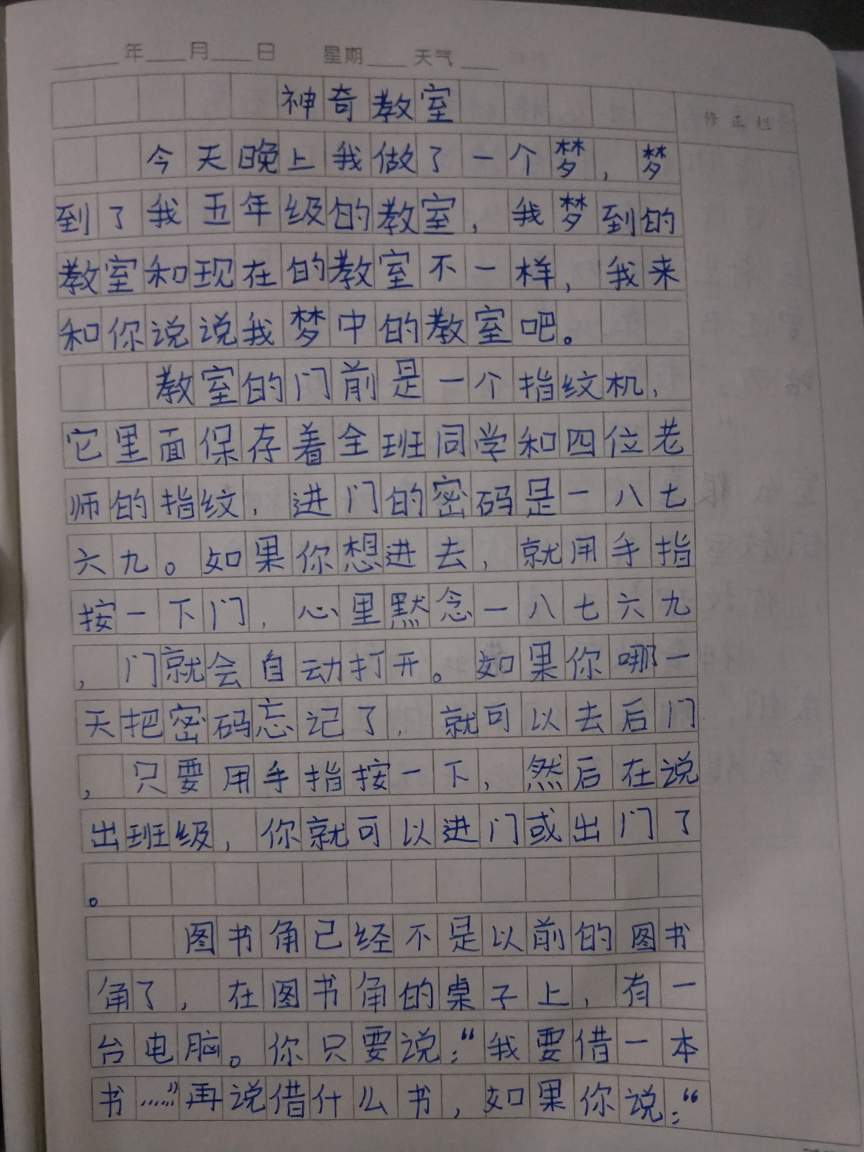 年 月 日 星期 天气
神奇教室
修正栏
今天晚上我做了一个梦，梦
到了我五年级的教室，我梦到的
教室和现在的教室不一样，我来
和你说说我梦中的教室吧。
教室的门前是一个指纹机，
它里面保存着全班同学和四位老
师的指纹，进门的密码是一八七
六九。如果你想进去，就用手指
按一下门，心里默念一八七六九
，门就会自动打开。如果你哪一
天把密码忘记了，就可以去后门
，只要用手指按一下，然后在说
出班级，你就可以进门或出门了
。
图书角已经不是以前的图书
角了，在图书角的桌子上，有一
台电脑。你只要说：“我要借一本
书……”再说借什么书，如果你说：“